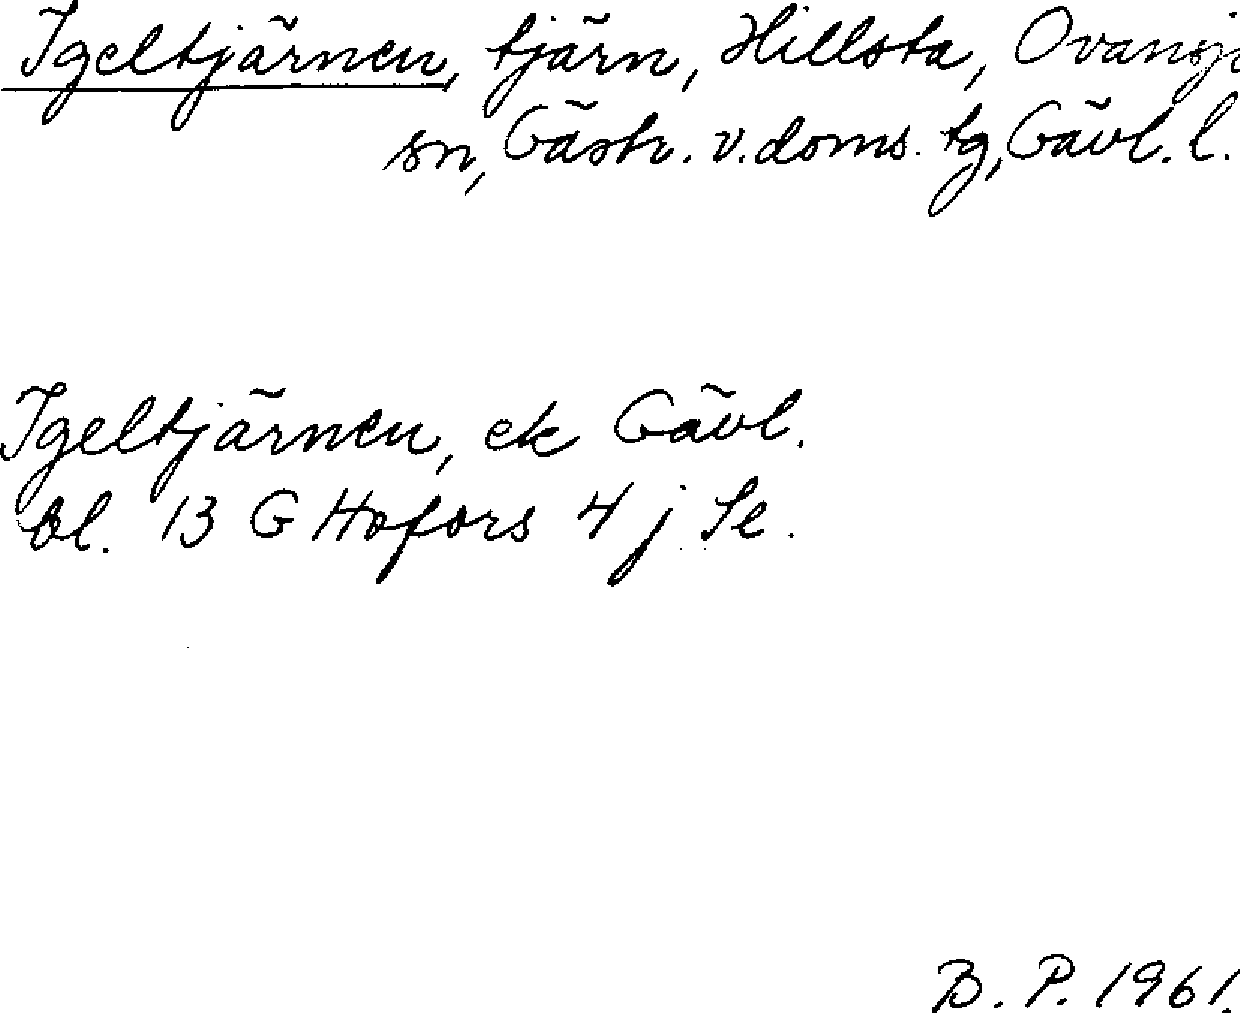 Igeltjärnen, tjärn, Hillsta, Ovansj
sn, Gästr. v. doms. tg, Gävl. l.
Igeltjärnen, ek Gävl.
bl. 13 G Hofors 4 j Se.
B. P. 1961.